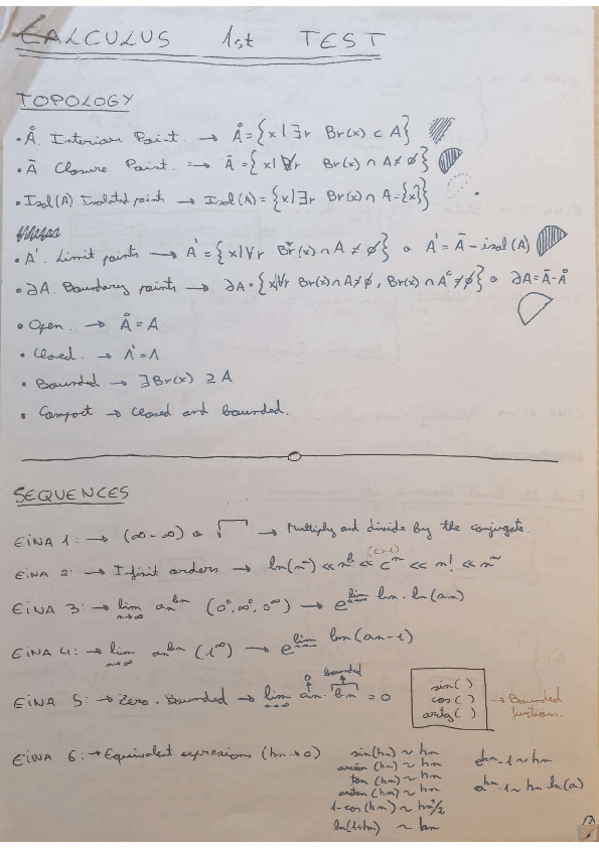 CALCULUS 1st TEST
TOPOLOGY
• Å. Interior Point. → Å = {x | ∃r Br(x) ⊂ A}
• Ā. Closure Point. → Ā = {x | ∀r Br(x) ∩ A ≠ ∅}
• Isol(A) Isolated points → Isol(A) = {x | ∃r Br(x) ∩ A = {x}}
• A'. Limit points → A' = {x | ∀r Br*(x) ∩ A ≠ ∅} o A' = Ā - isol(A)
• ∂A. Boundary points → ∂A = {x | ∀r Br(x) ∩ A ≠ ∅, Br(x) ∩ Aᶜ ≠ ∅} o ∂A = Ā - Å
• Open. → Å = A
• Closed. → A' = A
• Bounded → ∃ Br(x) ⊇ A
• Compact → Closed and bounded.
SEQUENCES
EINA 1: → (∞-∞) o √ → Multiply and divide by the conjugate.
EINA 2: → Infinit orders → ln(nᵐ) << nᵇ << cⁿ (c>1) << n! << nⁿ
EINA 3: → lim n→∞ an^bn (0⁰, ∞⁰, 0^∞) → e^lim bn · ln(an)
EINA 4: → lim n→∞ an^bn (1^∞) → e^lim bn(an-1)
EINA 5: → Zero · Bounded → lim n→∞ an · bn = 0
0 bounded
sin( )
cos( )
arctg( )
→ Bounded functions.
EINA 6: → Equivalent expresions (hn → 0)
sin(hn) ~ hn
arcsin(hn) ~ hn
tan(hn) ~ hn
arctan(hn) ~ hn
1-cos(hn) ~ hn²/2
ln(1+hn) ~ hn
e^hn - 1 ~ hn
a^hn - 1 ~ hn ln(a)